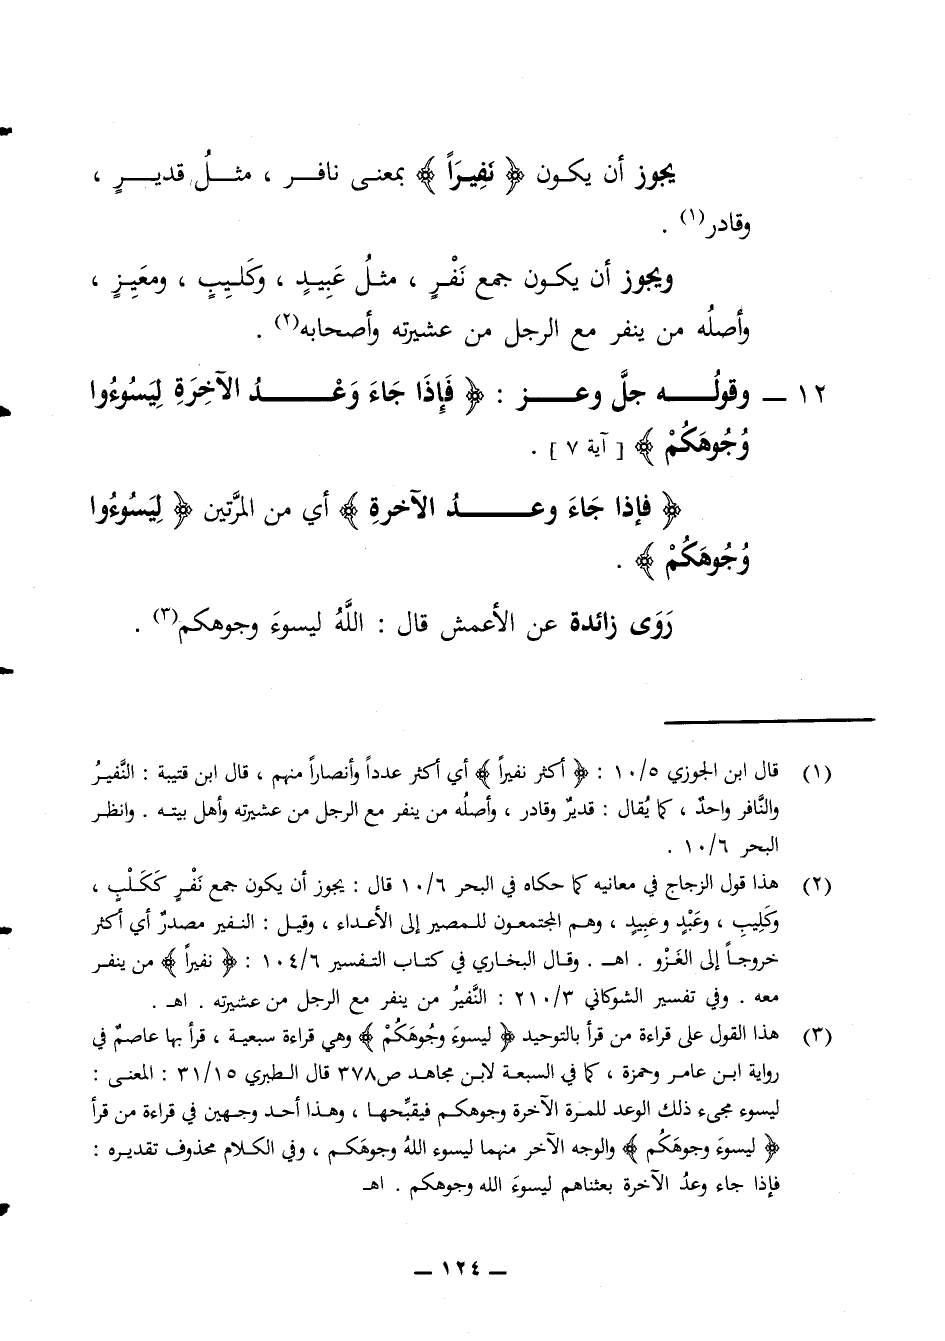 يجوز أن يكون ﴿ نَفِيرَاً ﴾ بمعنى نافر ، مثلُ قديرٍ ،
وقادر(١) .
ويجوز أن يكون جمع نَفْرٍ ، مثلُ عَبِيدٍ ، وكَلِيبٍ ، ومعَيِزٍ ،
وأصلُه من ينفر مع الرجل من عشيرته وأصحابه(٢) .
١٢ ــ وقولُه جلَّ وعز : ﴿ فَإِذَا جَاءَ وَعْدُ الآخِرَةِ لِيَسُوءُوا
وُجُوهَكُمْ ﴾ [ آية ٧ ] .
﴿ فإذا جَاءَ وعدُ الآخرةِ ﴾ أي من المرَّتين ﴿ لِيَسُوءُوا
وُجُوهَكُمْ ﴾ .
رَوَى زائدة عن الأعمش قال : اللَّهُ ليسوءَ وجوهكم(٣) .
(١) قال ابن الجوزي ١٠/٥ : ﴿ أكثر نفيراً ﴾ أي أكثر عدداً وأنصاراً منهم ، قال ابن قتيبة : النَّفيرُ
والنَّافر واحدٌ ، كما يُقال : قديرٌ وقادر ، وأصلُه من ينفر مع الرجل من عشيرته وأهل بيته . وانظر
البحر ١٠/٦ .
(٢) هذا قول الزجاج في معانيه كما حكاه في البحر ١٠/٦ قال : يجوز أن يكون جمع نَفْرٍ كَكَلْبٍ ،
وكَلِيبٍ ، وعَبْدٍ وعَبِيدٍ ، وهم المجتمعون للمصير إلى الأعداء ، وقيل : النفير مصدرٌ أي أكثر
خروجاً إلى الغَزْو . اهـ . وقال البخاري في كتاب التفسير ١٠٤/٦ : ﴿ نفيراً ﴾ من ينفر
معه . وفي تفسير الشوكاني ٢١٠/٣ : النَّفيرُ من ينفر مع الرجل من عشيرته . اهـ .
(٣) هذا القول على قراءة من قرأ بالتوحيد ﴿ ليسوءَ وجُوهَكُمْ ﴾ وهي قراءة سبعية ، قرأ بها عاصمٌ في
رواية ابن عامر وحمزة ، كما في السبعة لابن مجاهد ص٣٧٨ قال الطبري ٣١/١٥ : المعنى :
ليسوء مجيء ذلك الوعد للمرة الآخرة وجوهكم فيقبِّحها ، وهذا أحد وجهين في قراءة من قرأ
﴿ ليسوءَ وجوهَكُم ﴾ والوجه الآخر منهما ليسوء اللهُ وجوهَكم ، وفي الكلام محذوف تقديره :
فإذا جاء وعدُ الآخرة بعثناهم ليسوءَ الله وجوهكم . اهـ
ــ ١٢٤ ــ